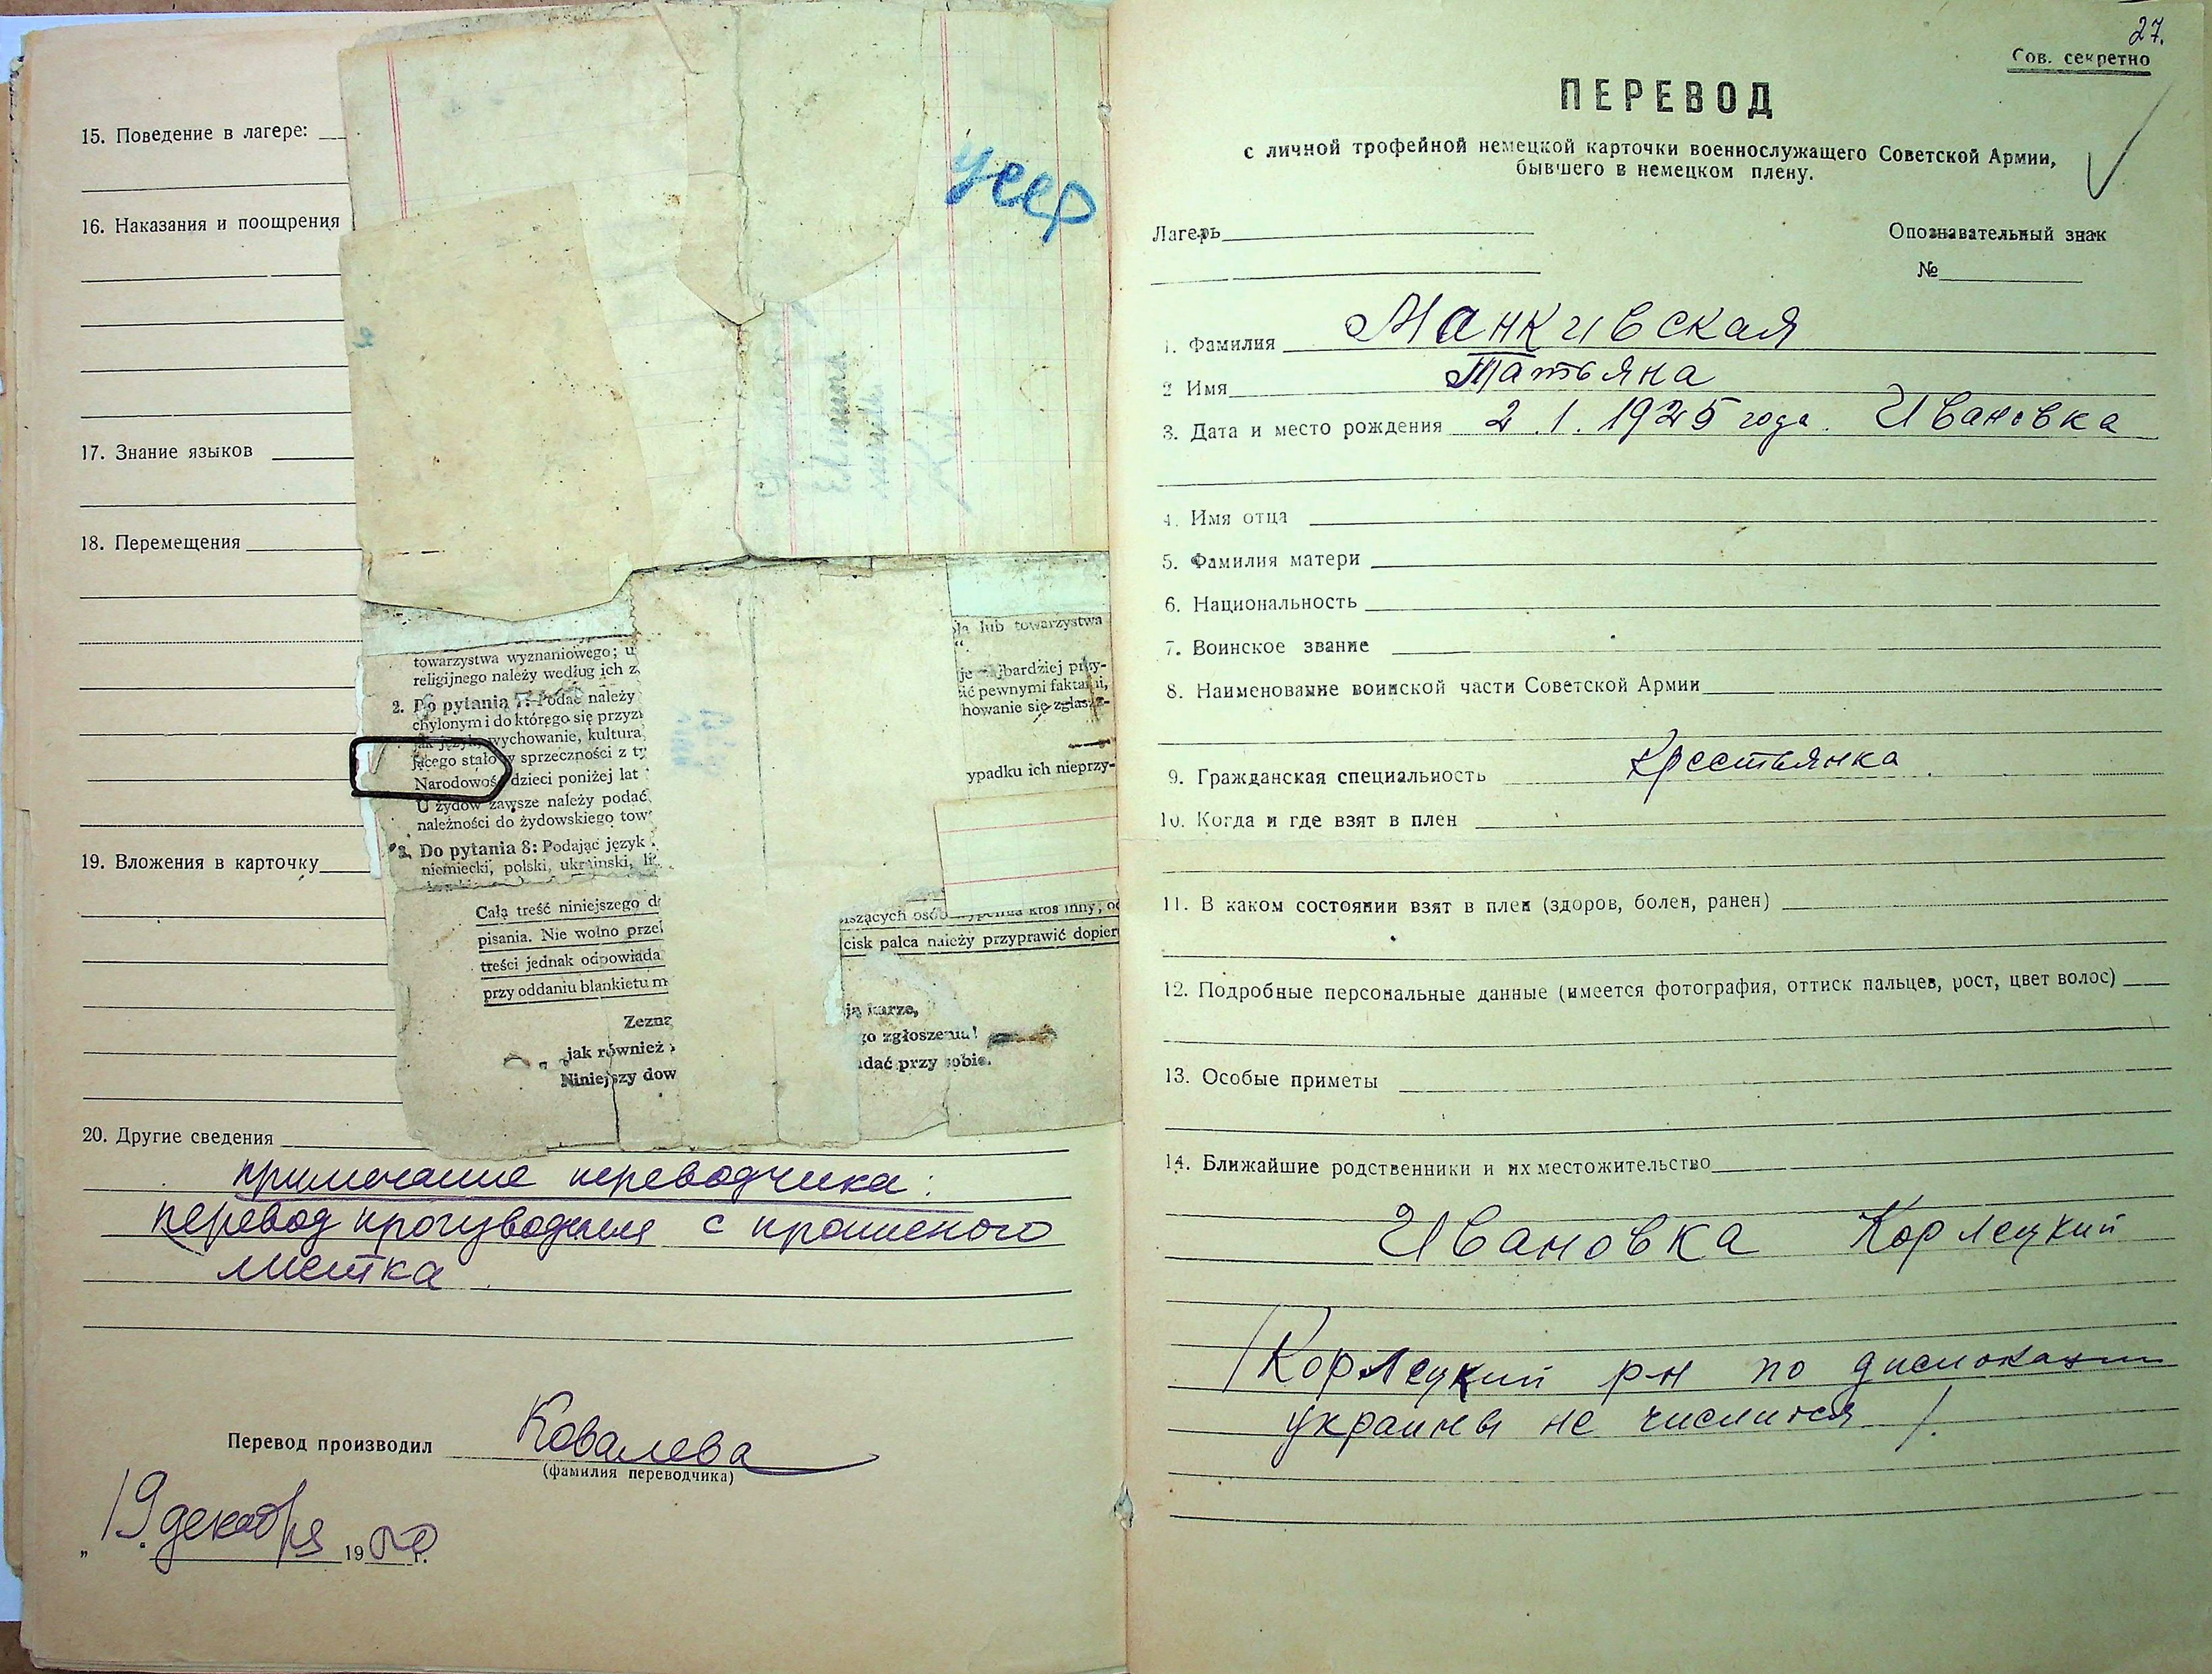 15. Поведение в лагере:
16. Наказания и поощрения
17. Знание языков
18. Перемещения
19. Вложения в карточку
20. Другие сведения
примечание переводчика:
перевод производился с
листка
Перевод производил Ковалева
(фамилия переводчика)
„19 декабря 1950 г.
towarzystwa wyznaniowego; u
religijnego należy według ich z
2. Do pytania 7: Podać należy
chylonym i do którego się przyzn
jak język, wychowanie, kultura,
jącego stało w sprzeczności z ty
Narodowość dzieci poniżej lat
U żydów zawsze należy podać
należności do żydowskiego tow
3. Do pytania 8: Podając język
niemiecki, polski, ukraiński,
Całą treść niniejszego d
pisania. Nie wolno prze
treści jednak odpowiada
przy oddaniu blankietu m
Zezna
jak również
Niniejszy dow
lub towarzystwa
je najbardziej przy-
ić pewnymi faktami,
howanie się zgłasz-
ypadku ich nieprzy-
iszących osób wypełnia ktoś inny,
cisk palca należy przyprawić dopier
karze,
go zgłoszenia!
adać przy sobie.
27.
Сов. секретно
ПЕРЕВОД
с личной трофейной немецкой карточки военнослужащего Советской Армии,
бывшего в немецком плену.
Лагерь
Опознавательный знак
№
1. Фамилия Манкивская
2 Имя Татьяна
3. Дата и место рождения 2.1.1925 года. Ивановка
4. Имя отца
5. Фамилия матери
6. Национальность
7. Воинское звание
8. Наименование воинской части Советской Армии
9. Гражданская специальность Крестьянка
10. Когда и где взят в плен
11. В каком состоянии взят в плен (здоров, болен, ранен)
12. Подробные персональные данные (имеется фотография, оттиск пальцев, рост, цвет волос)
13. Особые приметы
14. Ближайшие родственники и их местожительство
Ивановка Корлецкий
/Корлецкий р-н по дислокации
украины не числится/.